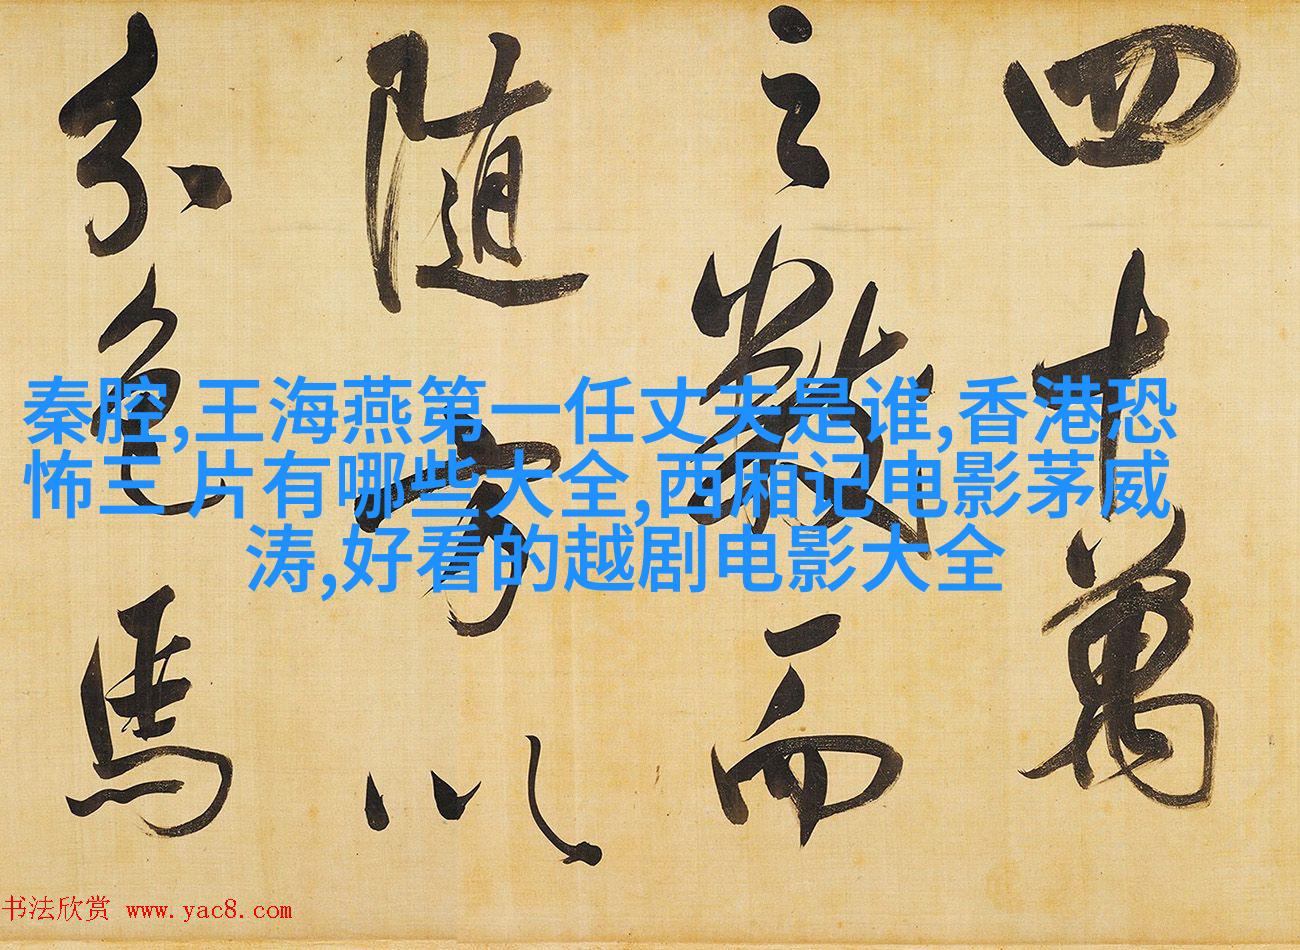 四十萬
之數而
隨方以
分色馬
秦腔,王海燕第一任丈夫是谁,香港恐
怖三 片有哪些大全,西厢记电影茅威
涛,好看的越剧电影大全
书法欣赏 www.yac8.com